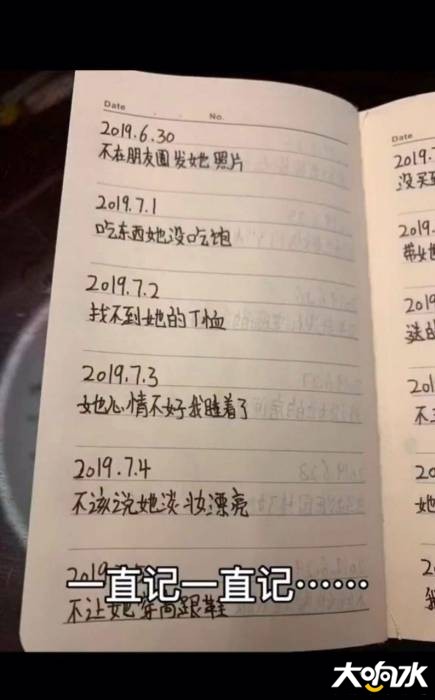 Date
No.
2019.6.30
不在朋友圈发她照片
2019.7.1
吃东西她没吃饱
2019.7.2
找不到她的T恤
2019.7.3
她心情不好我睡着了
2019.7.4
不该说她淡妆漂亮
2019.
一直记一直记······
不让她穿高跟鞋
Date
2019.7
没买到
带她
2019
送的
201
不
20
她
大响水